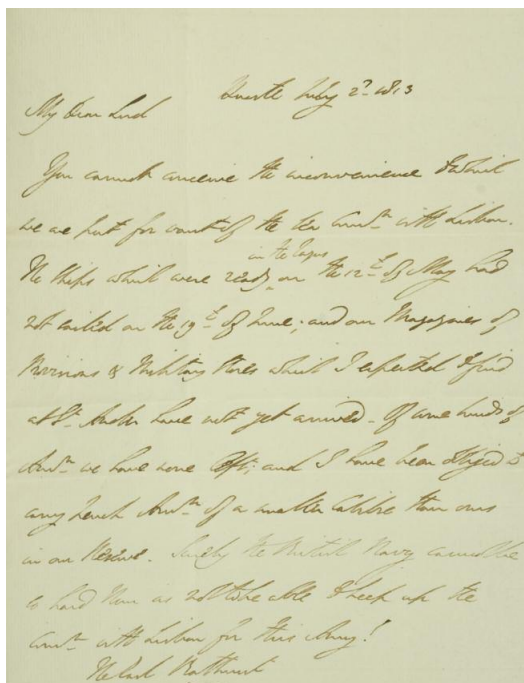 Huarte July 2d. 1813
My Dear Lord
You cannot conceive the inconvenience to which
we are put for want of the Sea Commn. with Lisbon.
in the Tagus
The Ships which were ready on the 12th. of May had
not sailed on the 19th. of June; and our Magazines of
Provisions & Military Stores which I expected to find
at St. Ander have not yet arrived. Of some kinds of
Ammn. we have none left; and I have been obliged to
carry French Ammn. of a smaller Calibre than ours
in our Reserve. Surely the British Navy cannot be
so hard run as not to be able to keep up the
Commn. with Lisbon for this Army!
The Earl Bathurst